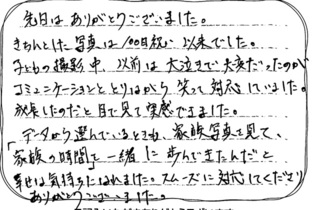 先日はありがとうございました。
きちんとした写真は100日祝い以来でした。
子どもの撮影中、以前は大泣きで大変だったのが
コミュニケーションをとりながら笑って対応していました。
成長したのだと目で見て実感できました。
データから選んでいるときも、家族写真を見て、
「家族の時間」を一緒に歩んできたんだと
幸せな気持ちになれました。スムーズに対応してくださり
ありがとうございました。